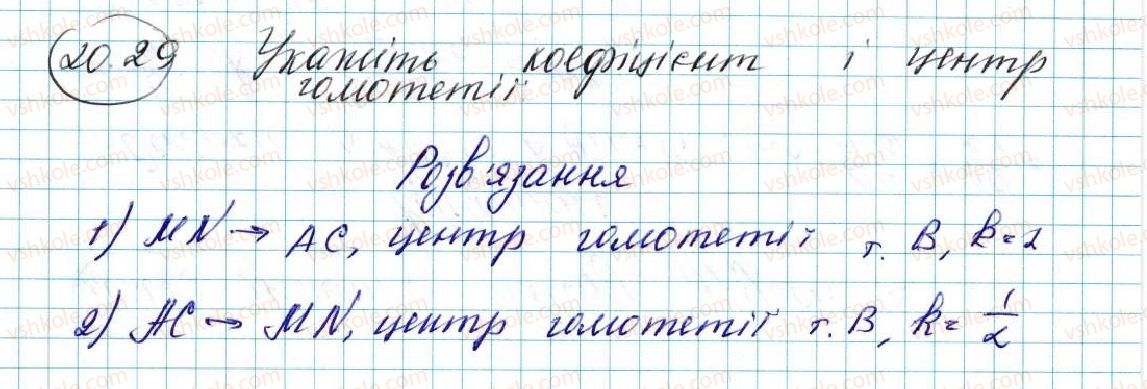 20.29 Укажіть коефіцієнт і центр
гомотетії
Розв'язання
1) MN → AC, центр гомотетії т. B, k=2
2) AC → MN, центр гомотетії т. B, k=1/2